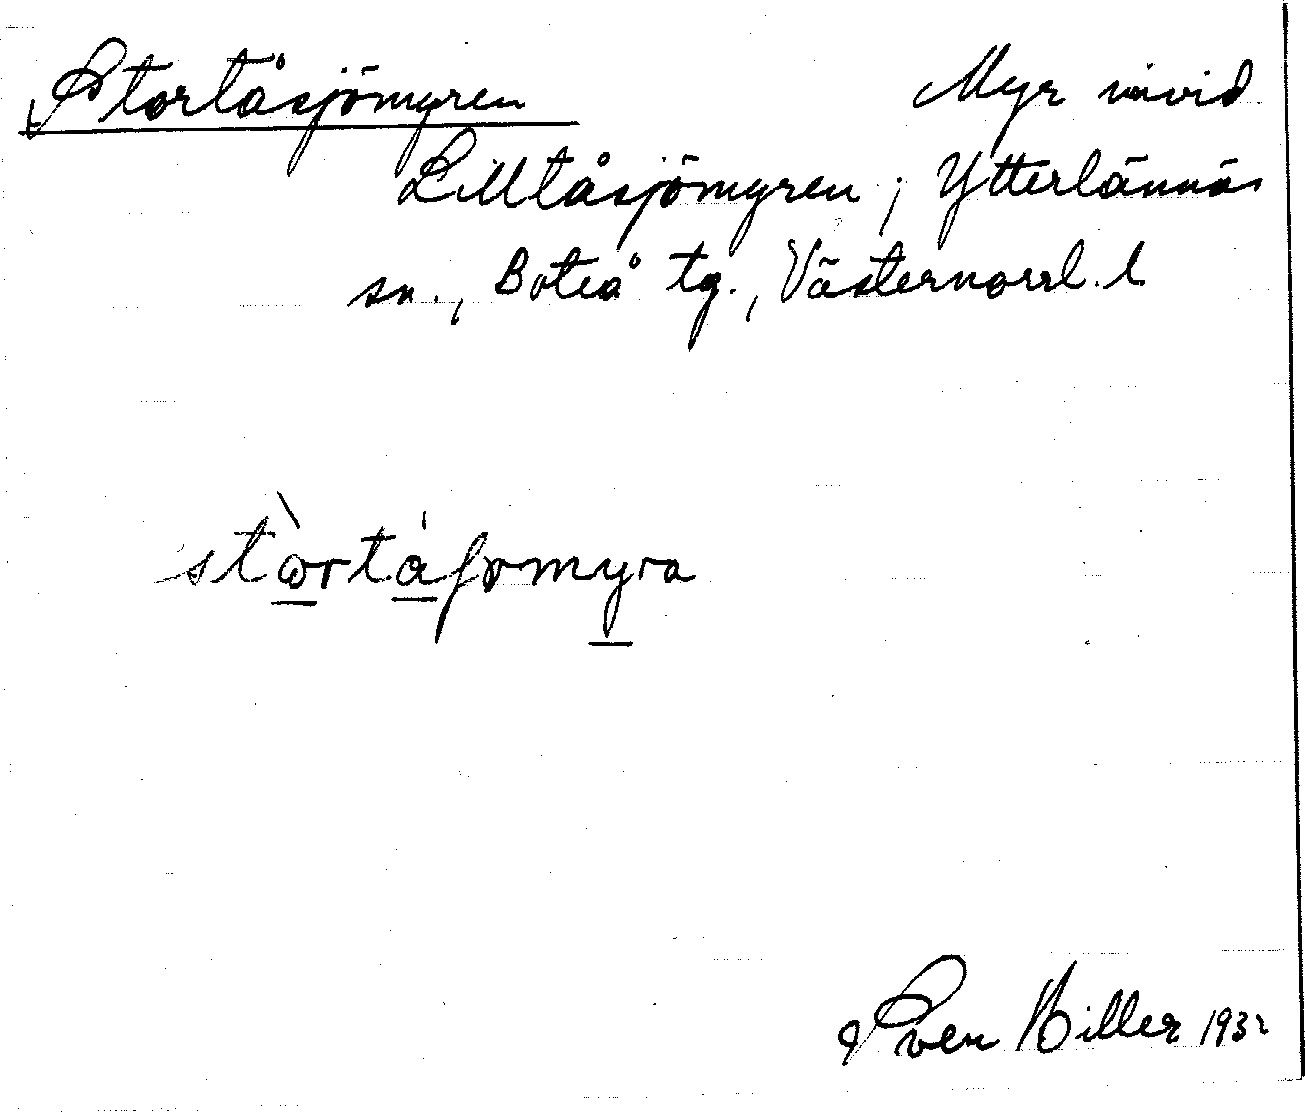 Stortåsjömyren Myr invid
Lilltåsjömyren; Ytterlännäs
sn., Boteå tg., Västernorrl. l
Sven Hiller 1932